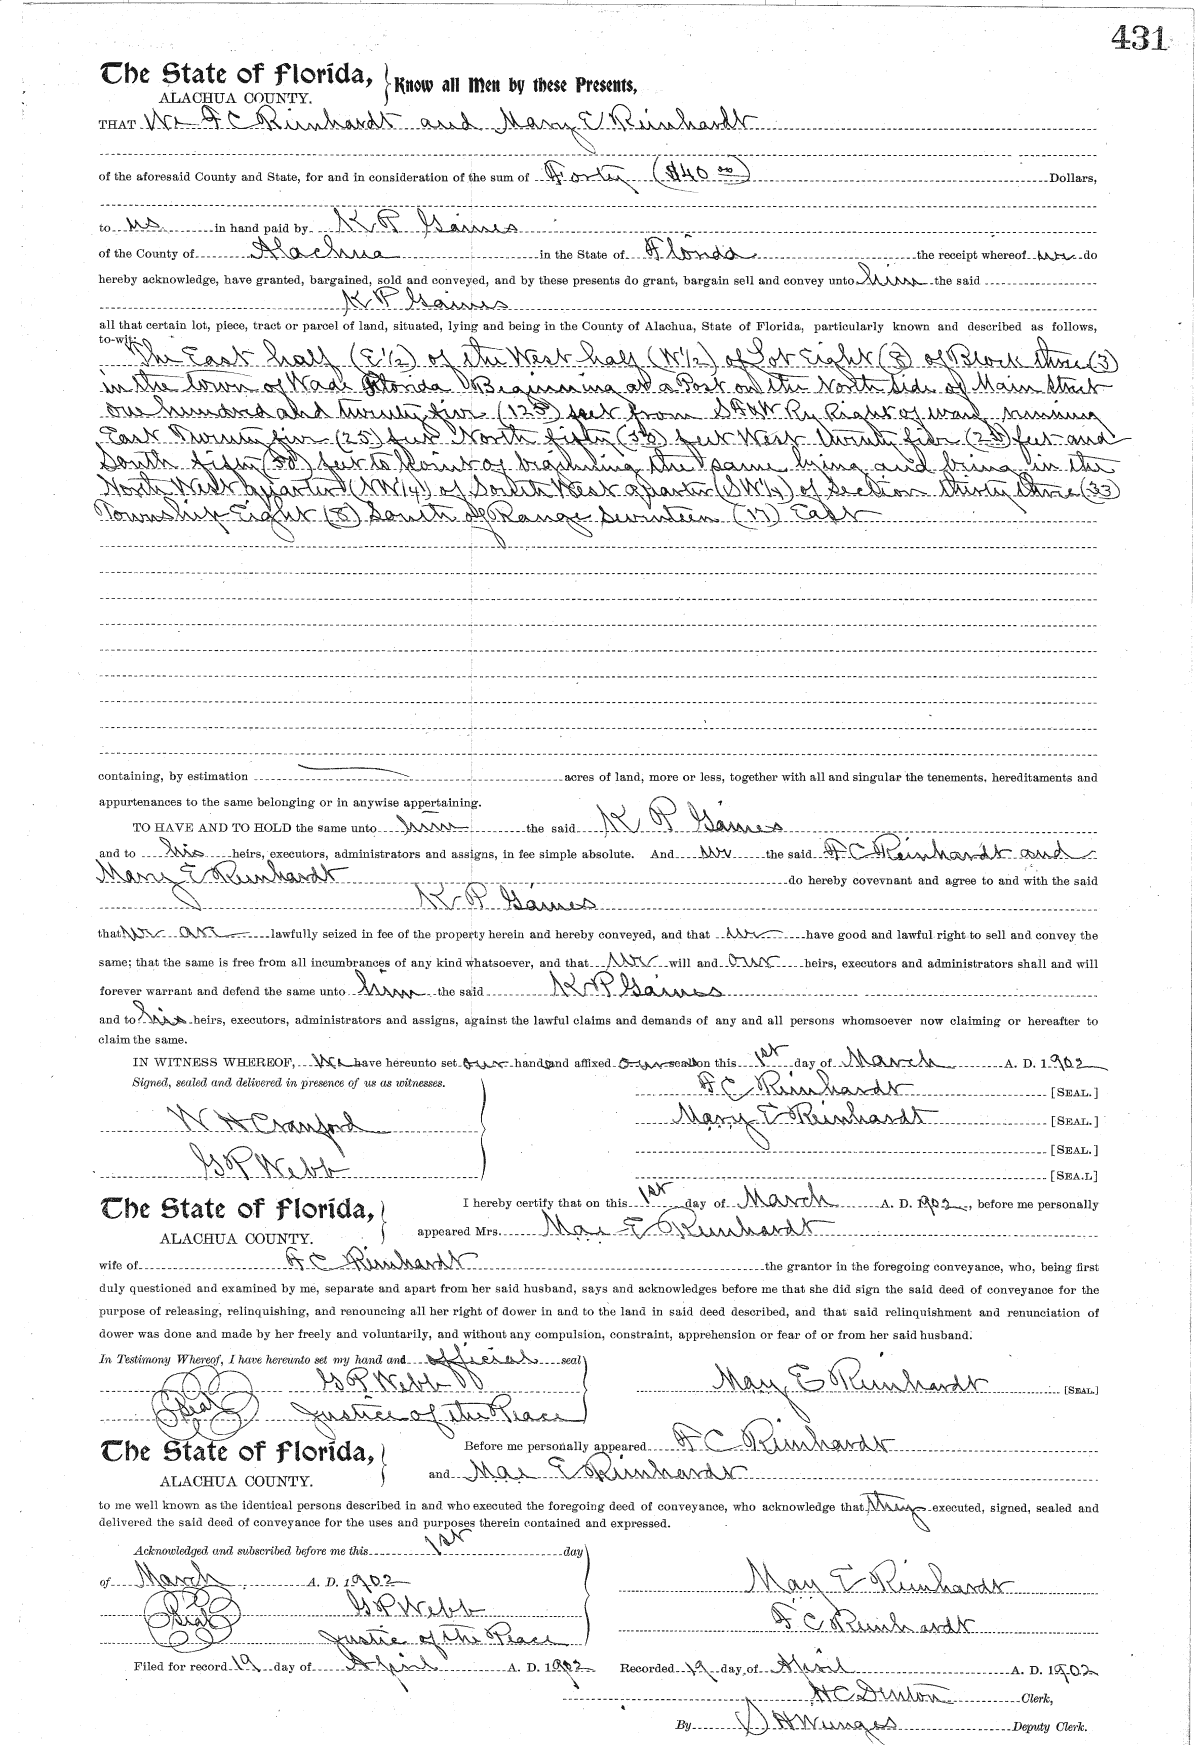 431
The State of Florida, Know all Men by these Presents,
ALACHUA COUNTY.
THAT We F C Reinhardt and Mary E Reinhardt
of the aforesaid County and State, for and in consideration of the sum of Forty ($40 00) Dollars,
to us in hand paid by K P Gaines
of the County of Alachua in the State of Florida the receipt whereof we do
hereby acknowledge, have granted, bargained, sold and conveyed, and by these presents do grant, bargain sell and convey unto him the said
K P Gaines
all that certain lot, piece, tract or parcel of land, situated, lying and being in the County of Alachua, State of Florida, particularly known and described as follows,
to-wit:
The East half (E 1/2) of the West half (W 1/2) of Lot Eight (8) of Block three (3)
in the town of Wade Florida Beginning at a Post on the North Side of Main Street
one hundred and twenty five (125) feet from S F & W Ry Right of way running
East Twenty five (25) feet North fifty (50) feet West twenty five (25) feet and
South fifty (50) feet to Point of beginning the same lying and being in the
North West quarter (NW 1/4) of South West quarter (SW 1/4) of Section thirty three (33)
Township Eight (8) South of Range Seventeen (17) East
containing, by estimation acres of land, more or less, together with all and singular the tenements, hereditaments and
appurtenances to the same belonging or in anywise appertaining.
TO HAVE AND TO HOLD the same unto him the said K P Gaines
and to his heirs, executors, administrators and assigns, in fee simple absolute. And we the said F C Reinhardt and
Mary E Reinhardt do hereby covevnant and agree to and with the said
K P Gaines
that we are lawfully seized in fee of the property herein and hereby conveyed, and that we have good and lawful right to sell and convey the
same; that the same is free from all incumbrances of any kind whatsoever, and that we will and our heirs, executors and administrators shall and will
forever warrant and defend the same unto him the said K P Gaines
and to his heirs, executors, administrators and assigns, against the lawful claims and demands of any and all persons whomsoever now claiming or hereafter to
claim the same.
IN WITNESS WHEREOF, We have hereunto set our hands and affixed our seals on this 1st day of March A. D. 1902
Signed, sealed and delivered in presence of us as witnesses. F C Reinhardt [SEAL.]
W H Cranford Mary E Reinhardt [SEAL.]
[SEAL.]
G P Webb [SEA.L]
The State of Florida, I hereby certify that on this 1st day of March A. D. 1902, before me personally
ALACHUA COUNTY. appeared Mrs. Mae E Reinhardt
wife of F C Reinhardt the grantor in the foregoing conveyance, who, being first
duly questioned and examined by me, separate and apart from her said husband, says and acknowledges before me that she did sign the said deed of conveyance for the
purpose of releasing, relinquishing, and renouncing all her right of dower in and to the land in said deed described, and that said relinquishment and renunciation of
dower was done and made by her freely and voluntarily, and without any compulsion, constraint, apprehension or fear of or from her said husband.
In Testimony Whereof, I have hereunto set my hand and official seal
G P Webb May E Reinhardt [SEAL.]
Seal Justice of the Peace
The State of Florida, Before me personally appeared F C Reinhardt
ALACHUA COUNTY. and Mae E Reinhardt
to me well known as the identical persons described in and who executed the foregoing deed of conveyance, who acknowledge that they executed, signed, sealed and
delivered the said deed of conveyance for the uses and purposes therein contained and expressed.
Acknowledged and subscribed before me this 1st day
of March A. D. 1902 May E Reinhardt
Seal G P Webb F C Reinhardt
Justice of the Peace
Filed for record 19 day of April A. D. 1902 Recorded 19 day of April A. D. 1902
H C Denton Clerk,
By S H Wienges Deputy Clerk.